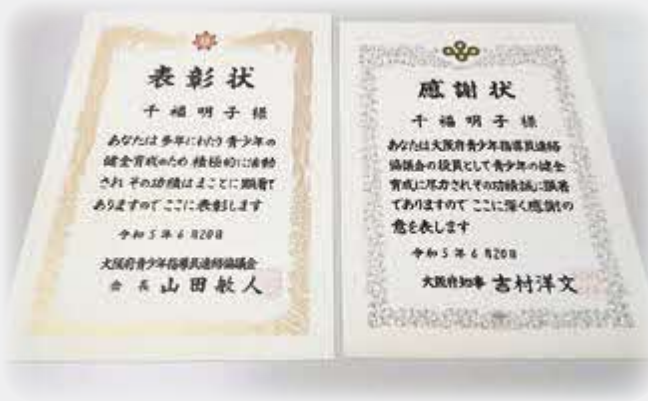 表彰状
千福明子様
あなたは多年にわたり青少年の
健全育成のため積極的に活動
されその功績はまことに顕著で
ありますのでここに表彰します
令和5年6月20日
大阪府青少年指導員連絡協議会
会長 山田敏人
感謝状
千福明子様
あなたは大阪府青少年指導員連絡
協議会の役員として青少年の健全
育成に尽力されその功績誠に顕著
でありますのでここに深く感謝の
意を表します
令和5年6月20日
大阪府知事 吉村洋文